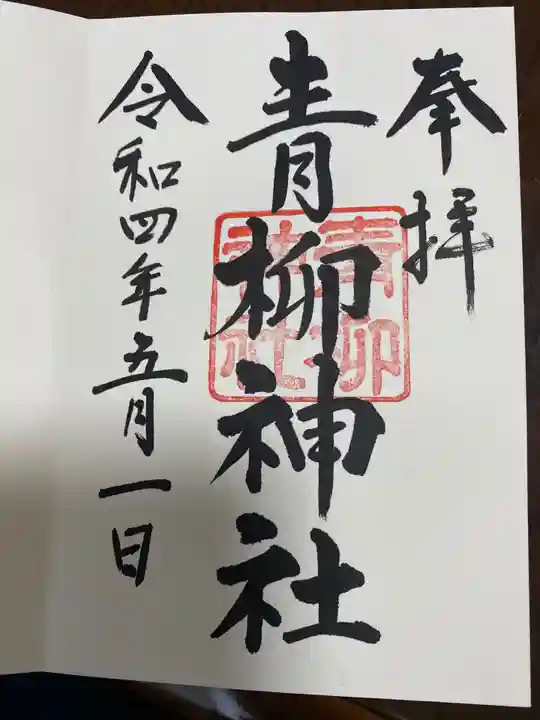 奉拝
青柳神社
青柳
神社
令和四年五月一日